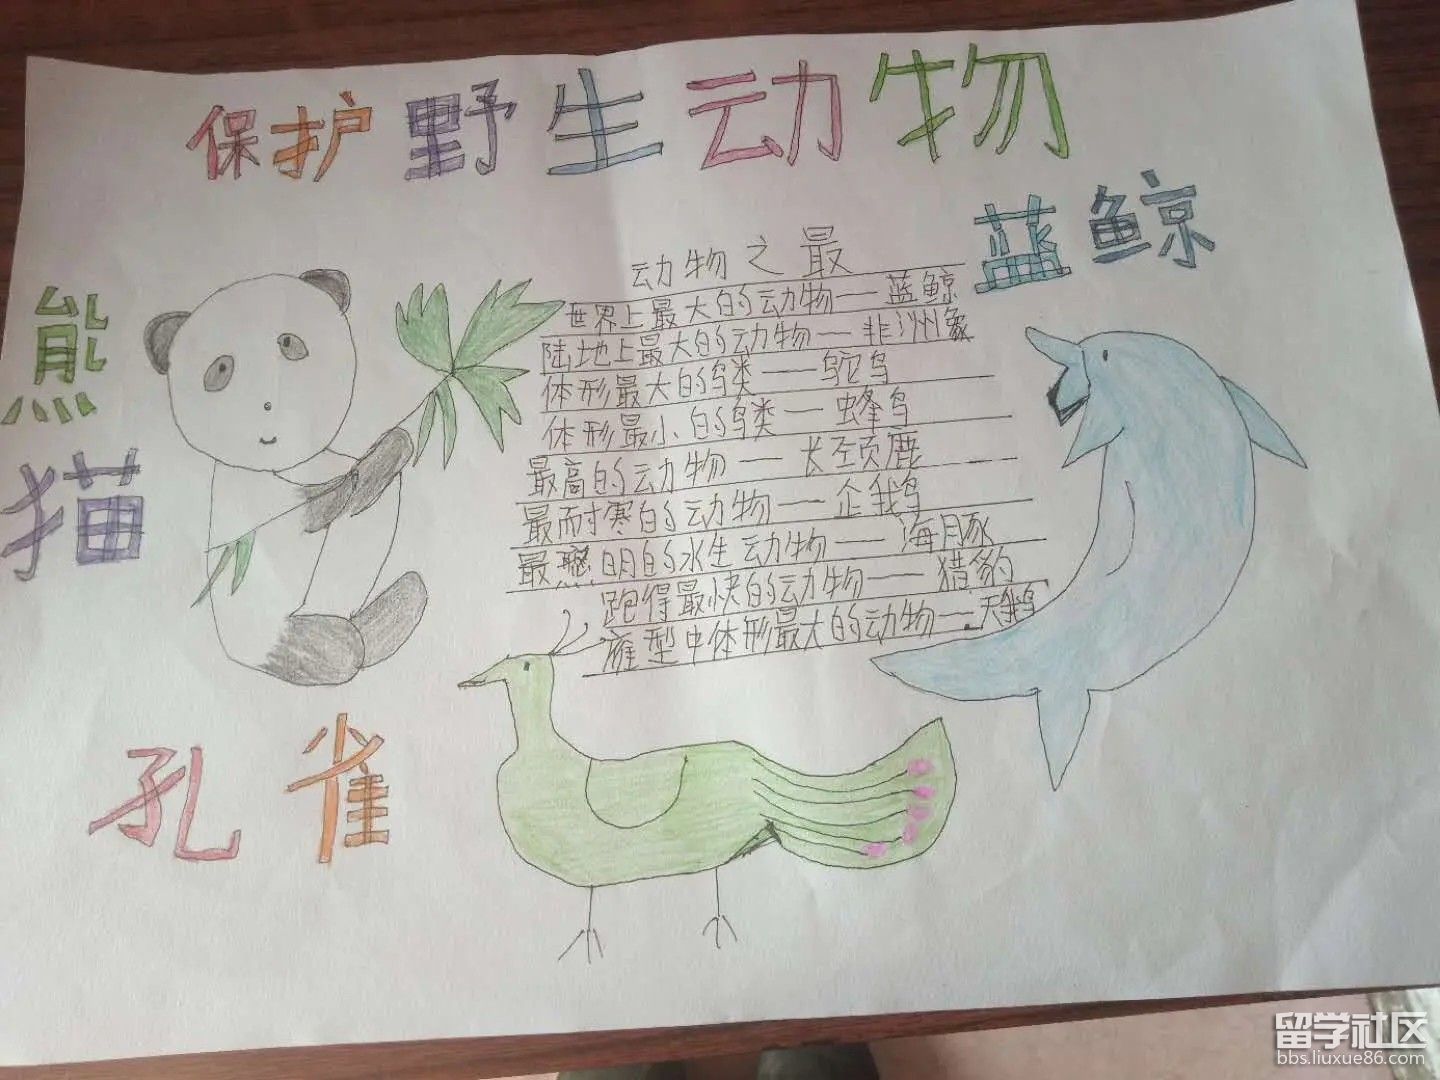 保护野生动物
蓝鲸
熊猫
动物之最
世界上最大的动物——蓝鲸
陆地上最大的动物——非洲象
体形最大的鸟类——鸵鸟
体形最小的鸟类——蜂鸟
最高的动物——长颈鹿
最耐寒的动物——企鹅
最聪明的水生动物——海豚
跑得最快的动物——猎豹
雁型中体形最大的动物——天鹅
孔雀
留学社区
bbs.liuxue86.com